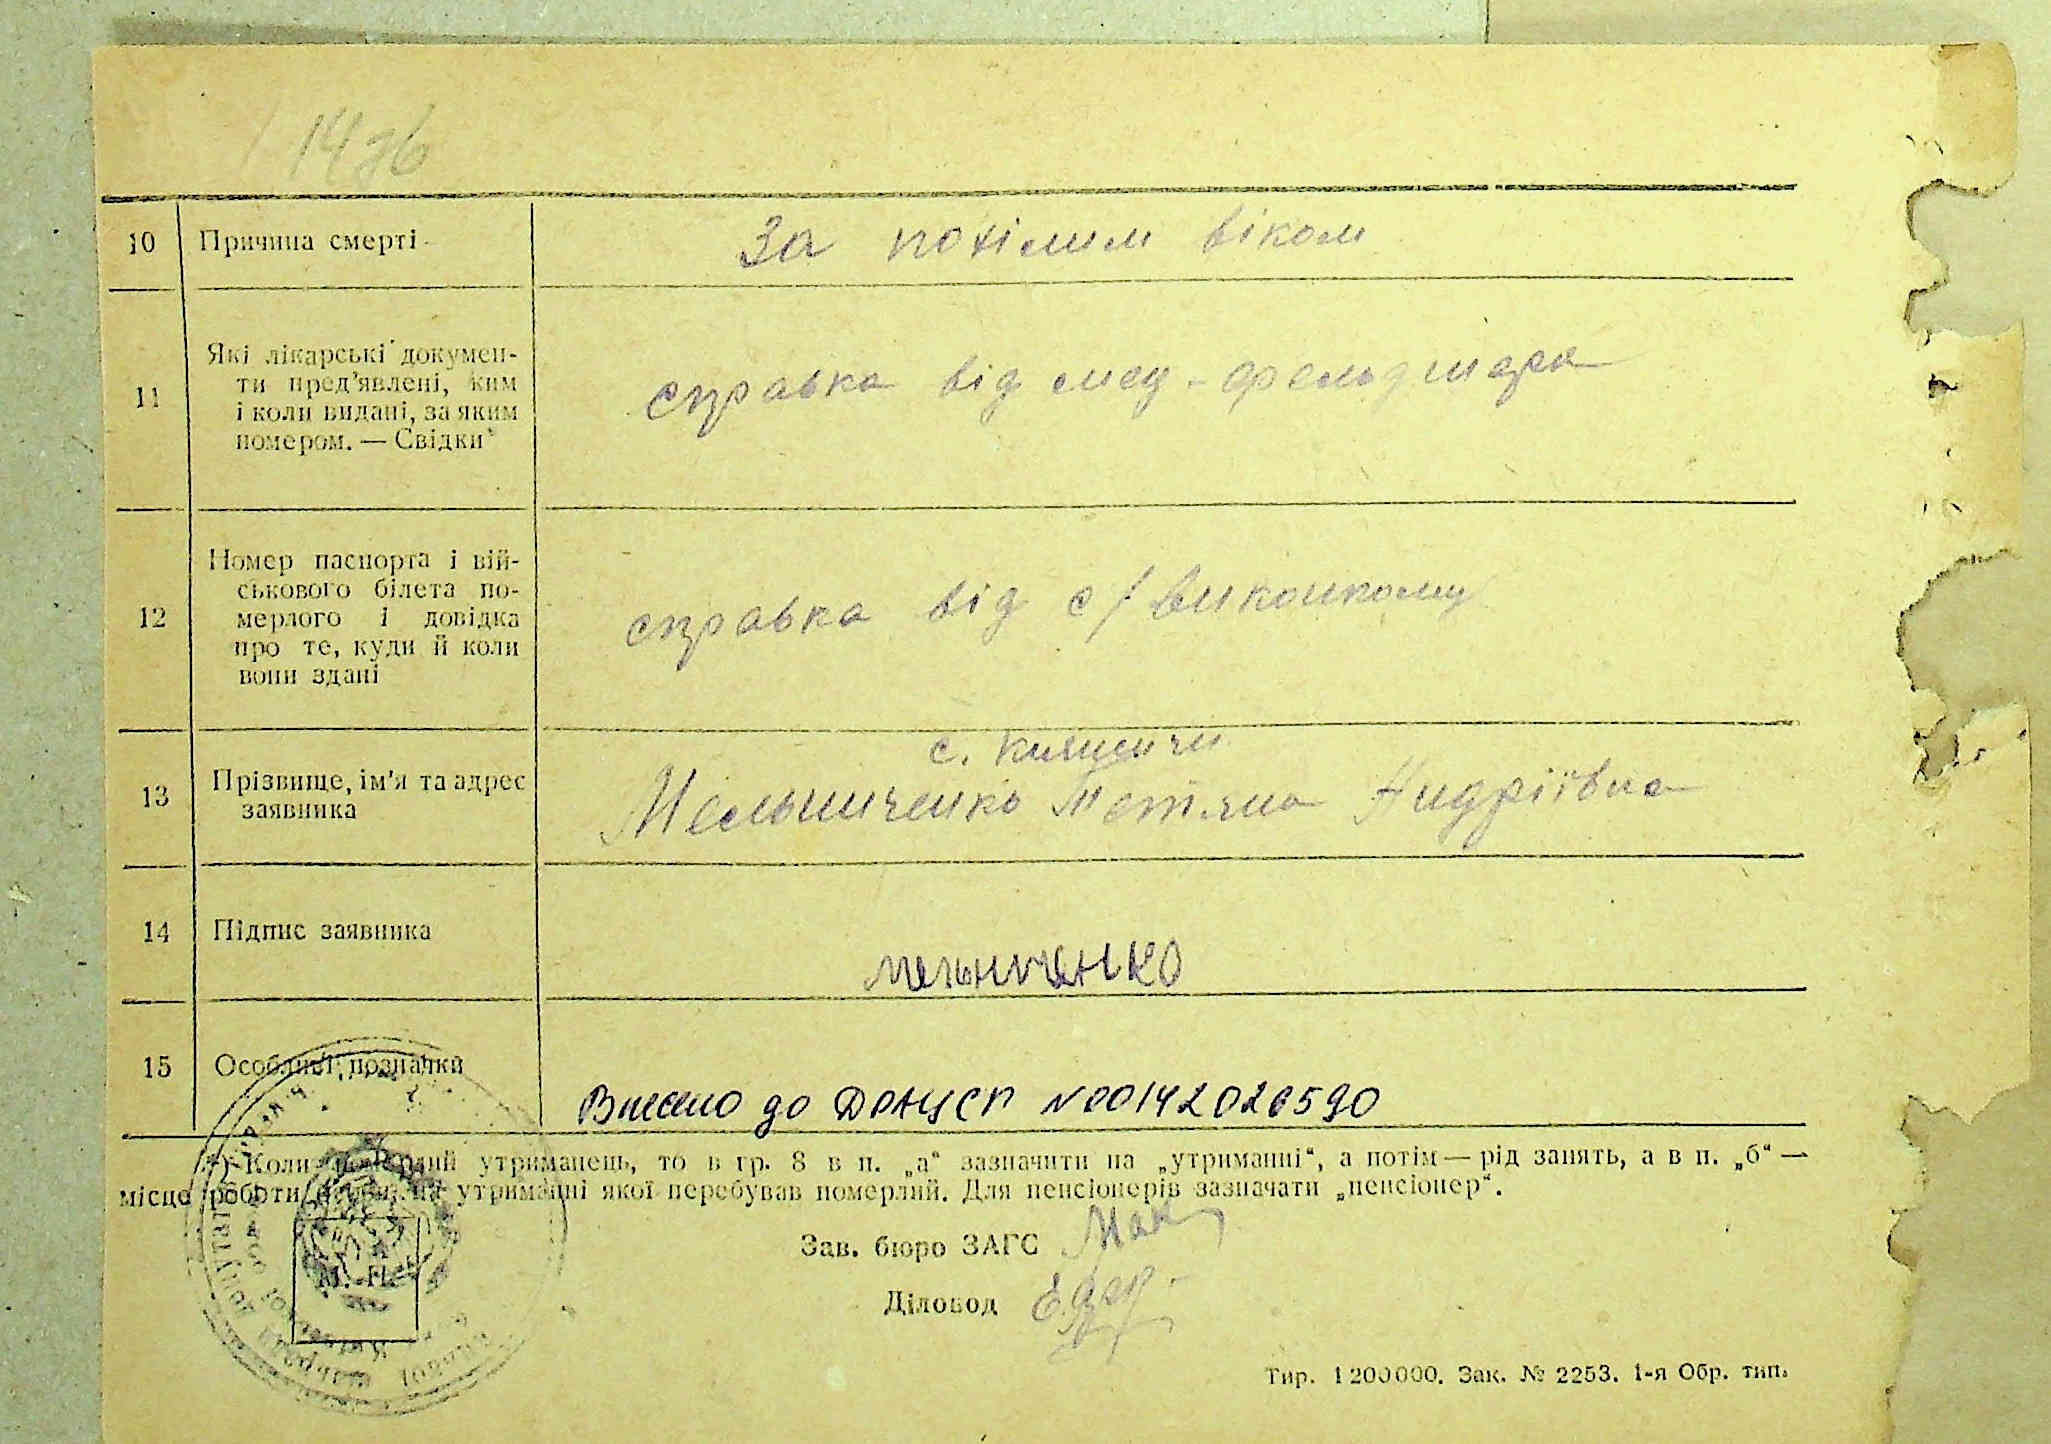 14зв
10 Причина смерті За похілим віком
11 Які лікарські докумен-
ти пред'явлені, ким
і коли видані, за яким
номером. — Свідки
справка від мед-фельдшера
12 Номер паспорта і вій-
ськового білета по-
мерлого і довідка
про те, куди й коли
вони здані
справка від с/виконкому
с. Княжичи
13 Прізвище, ім'я та адрес
заявника
Мельниченко Тетяна Андріївна
14 Підпис заявника
мельниченко
15 Особливі позначки
Внесено до ДРАЦСГ N00142026590
*) Коли померлий утриманець, то в гр. 8 в п. „а“ зазначити на „утриманні“, а потім — рід занять, а в п. „б“ —
місце роботи особи, на утриманні якої перебував померлий. Для пенсіонерів зазначати „пенсіонер“.
Зав. бюро ЗАГС
Діловод
М. П.
Тир. 1 200 000. Зак. № 2253. 1-я Обр. тип.